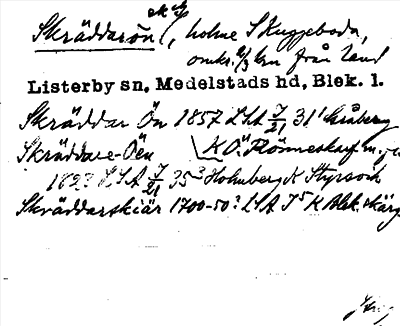 Skräddarön, holme S Kuggeboda,
omkr. 1/3 km från land
Listerby sn, Medelstads hd, Blek. l.
Skräddar Ön 1857 LSA 7/21 31'
Skräddare-Öen K Ö. Rönneskuf
1823 LSA 7/21 35³ Holmberg K Styrsoch
Skräddarskiär 1700-50? LSA J5 K Blek. skärg